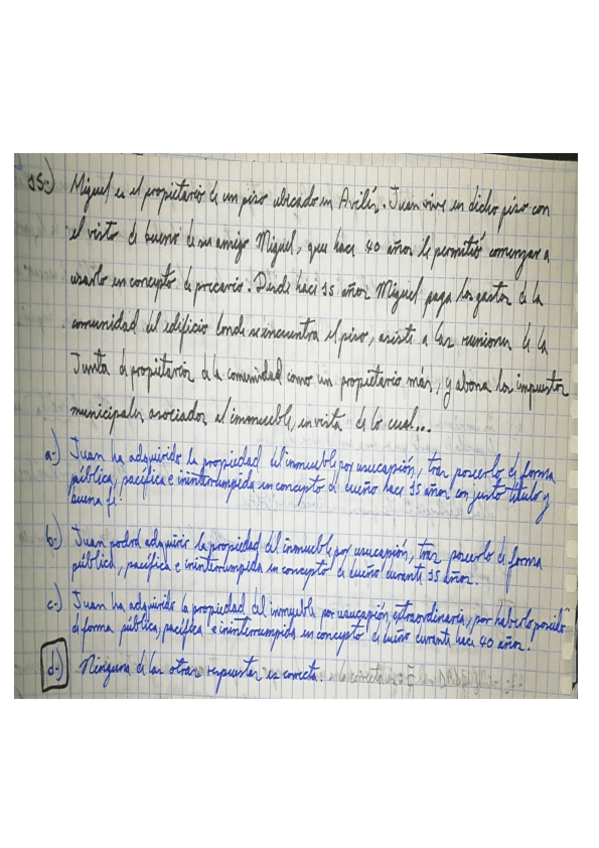 15-) Miguel es el propietario de un piso ubicado en Avilés. Juan vive en dicho piso con
el visto de bueno de su amigo Miguel, que hace 40 años le permitió comenzar a
usarlo en concepto de precario. Desde hace 15 años Miguel paga los gastos de la
comunidad del edificio donde se encuentra el piso, asiste a las reuniones de la
Junta de propietarios de la comunidad como un propietario más, y abona los impuestos
municipales asociados al inmueble, en vista de lo cual...
a-) Juan ha adquirido la propiedad del inmueble por usucapión, tras poseerlo de forma
pública, pacífica e ininterrumpida en concepto de dueño hace 15 años con justo título y
buena fe.
b-) Juan podrá adquirir la propiedad del inmueble por usucapión, tras poseerlo de forma
pública, pacífica e ininterrumpida en concepto de dueño durante 15 años.
c-) Juan ha adquirido la propiedad del inmueble por usucapión extraordinaria, por haberlo poseído
de forma pública, pacífica e ininterrumpida en concepto de dueño durante hace 40 años.
d-) Ninguna de las otras respuestas es correcta.